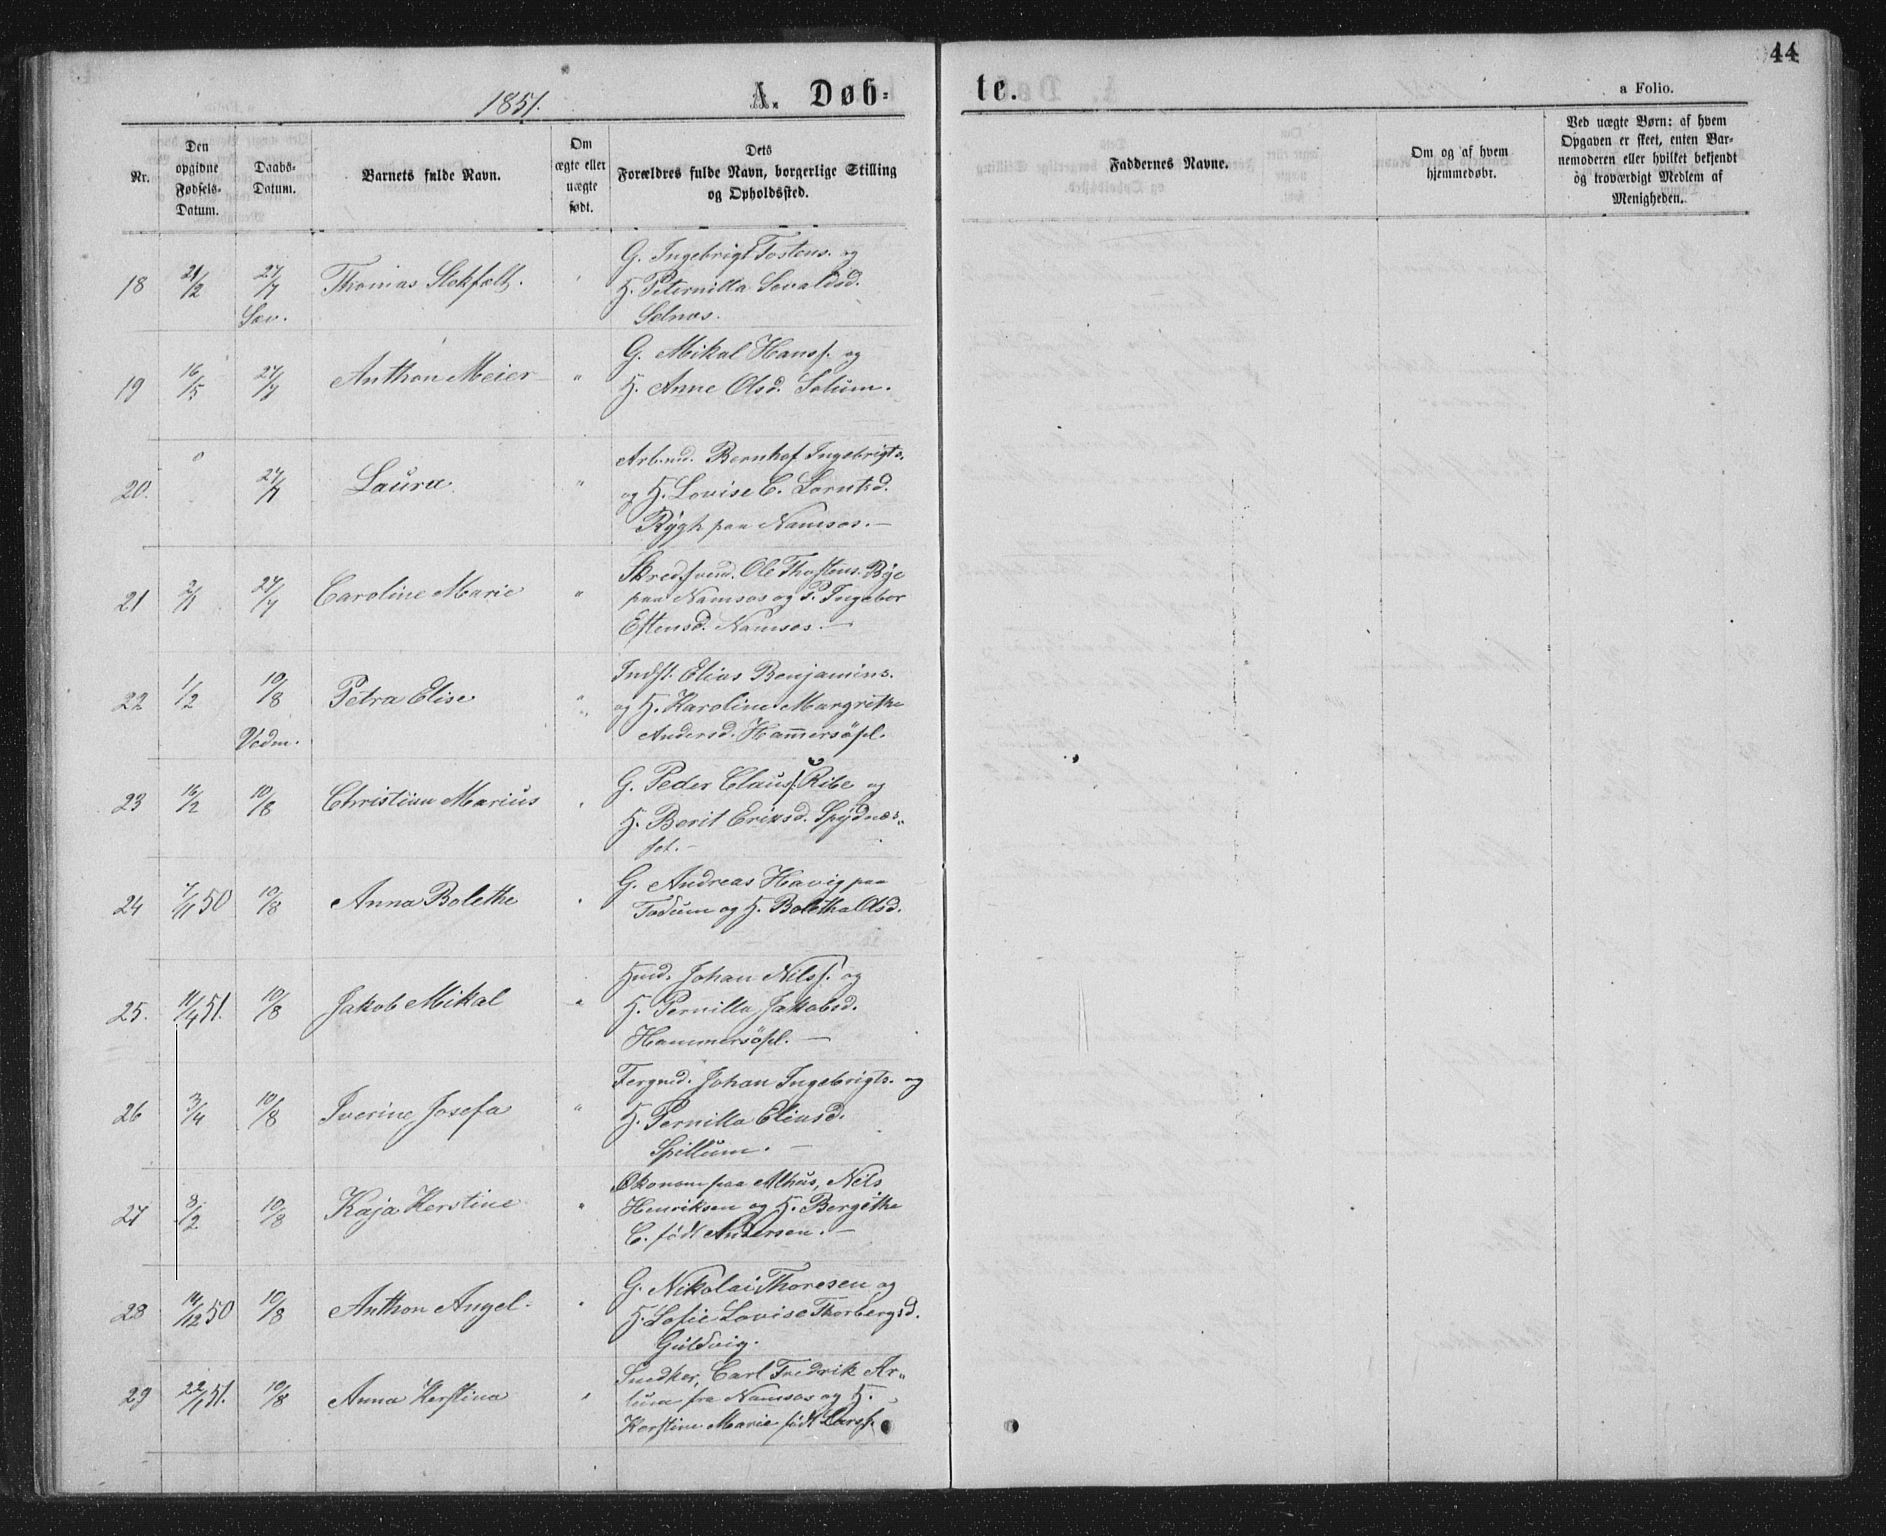 44
1851.
A. Døb-
te.
a Folio.
Nr.
Den
opgivne
Fødsels-
Datum.
Daabs-
Datum.
Barnets fulde Navn.
Om
ægte eller
uægte
født.
Dets
Forældres fulde Navn, borgerlige Stilling
og Opholdssted.
Faddernes Navne.
Om og af hvem
hjemmedøbt.
Ved uægte Børn: af hvem
Opgaven er skeet, enten Bar-
nemoderen eller hvilket bekjendt
og troværdigt Medlem af
Menigheden.
18 21/2 27/7 Thomas Stokfelt. "
Sæv.
G. Ingebrigt Tostens. og
H. Peternilla Sevaldsd.
Selnæs.
19 16/5 27/7 Anthon Meier "
G. Mikal Hanss. og
H. Anne Olsd. Solum.
20. 27/7 Laura "
Arbmd. Bernhof Ingebrigts.
og H. Lovise C. Lorntsd.
Rygh paa Namsos. —
21 2/1 27/7 Caroline Marie "
Skredsvend. Ole Thostens. Bye
paa Namsos og P. Ingebor
Estensd. Namsos. —
22 1/2 10/8 Petra Elise "
Vedm.
Indst. Elias Benjamins.
og H. Karoline Margrethe
Andersd. Ham̄ersöpl.
23 16/2 10/8 Christian Marius "
G. Peder Clauss. Ribe og
H. Berit Eriksd. Spydnæs-
set. —
24 7/11 50 10/8 Anna Bolethe "
G. Andreas Havig paa
Tødum og H. Boletha Olsd.
25. 11/4 51. 10/8 Jakob Mikal "
Hmd. Johan Nilss. og
H. Pernilla Jakobsd.
Hammersöpl. —
26 3/4 10/8 Iverine Josefa "
Fergmd. Johan Ingebrigts. og
H. Pernilla Eliasd.
Spillum. —
27 8/2 10/8 Kaja Kerstine "
Økonom paa Alhus, Nils
Henriksen og H. Bergithe
C. født Andersen. —
28 14/12 50 10/8 Anthon Angel. "
G. Nikolai Thoresen og
H. Sofie Lovise Thorbergsd.
Guldvig.
29 22/1 51. 10/8 Anna Kerstina "
Snedker, Carl Fredrik Ar-
lum fra Namsos og H.
Kerstine Marie født Larss.